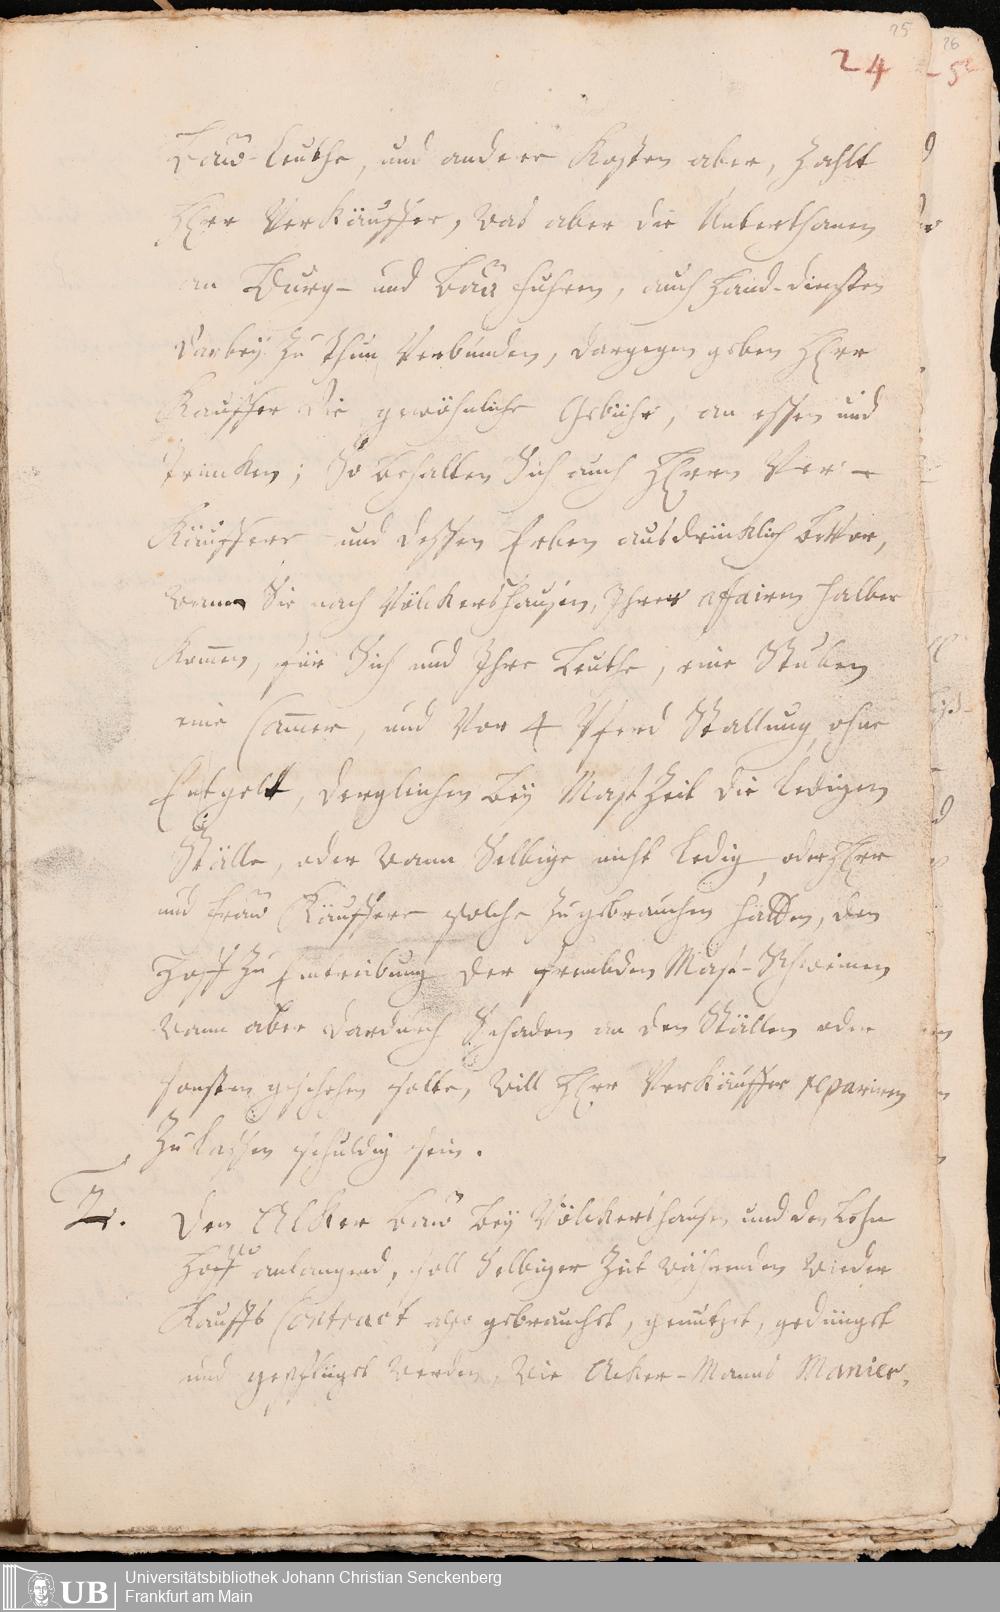 25
24
Bau-Leuthe, und andere Kosten aber, zahlt
Herr Verkäuffer, was aber die Unterthanen
an Burg- und Bau fuhren, auch Hand-diensten
darbeÿ zu thun verbunden, dargegen geben Herr
Kauffer die gewöhnliche Gebühr, an essen und
trincken; So behalten Sich auch Herrn Ver-
Käuffere und dessen Erben ausdrücklich bevor,
wann Sie nach Völckershausen, Ihrer affairen halber
kom̄en, für Sich und Ihre Leuthe, eine Stuben
eine Cam̄er, und vor 4 Pferd Stallung, ohne
Entgelt, dergleichen beÿ Mast Zeit die ledigen
Ställe, oder wann Selbige nicht ledig, oder Herr
und Frau Käuffere solche zu gebrauchen hätten, den
Hoff zu Eintreibung der frembden Mast-Schweinen
wann aber dardurch Schaden an den Ställen oder
sonsten geschehen solte, will Herr Verkäuffer repariren
zu lassen schuldig sein.
2. Den Acker bau beÿ Völckershausen und den Lehn
Hoff anlangend, soll Selbiger Zeit währenden wieder
Kauffs Contract also gebraucht, genutzet, gedüngt
und gepflügt werden, wie Acker-Manns Manier,
26
Universitätsbibliothek Johann Christian Senckenberg
Frankfurt am Main
UB